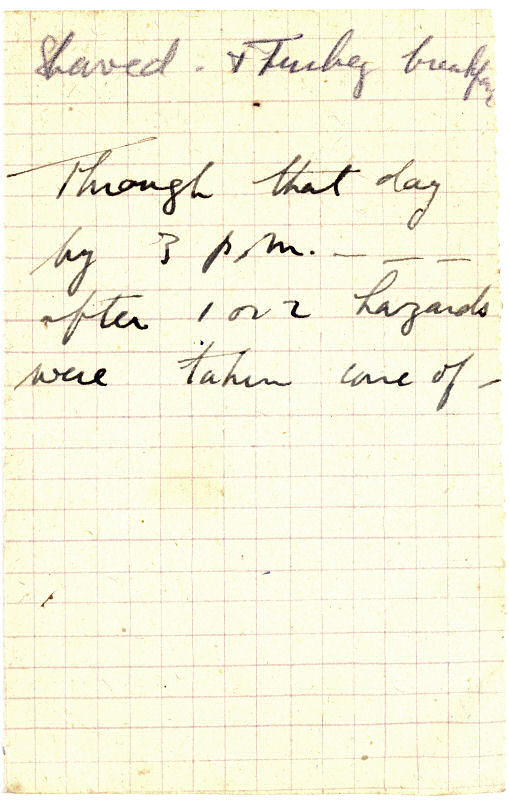 Shaved. & Turkey breakfas
Through that day
by 3 p.m. - - -
after 1 or 2 hazards
were taken care of -